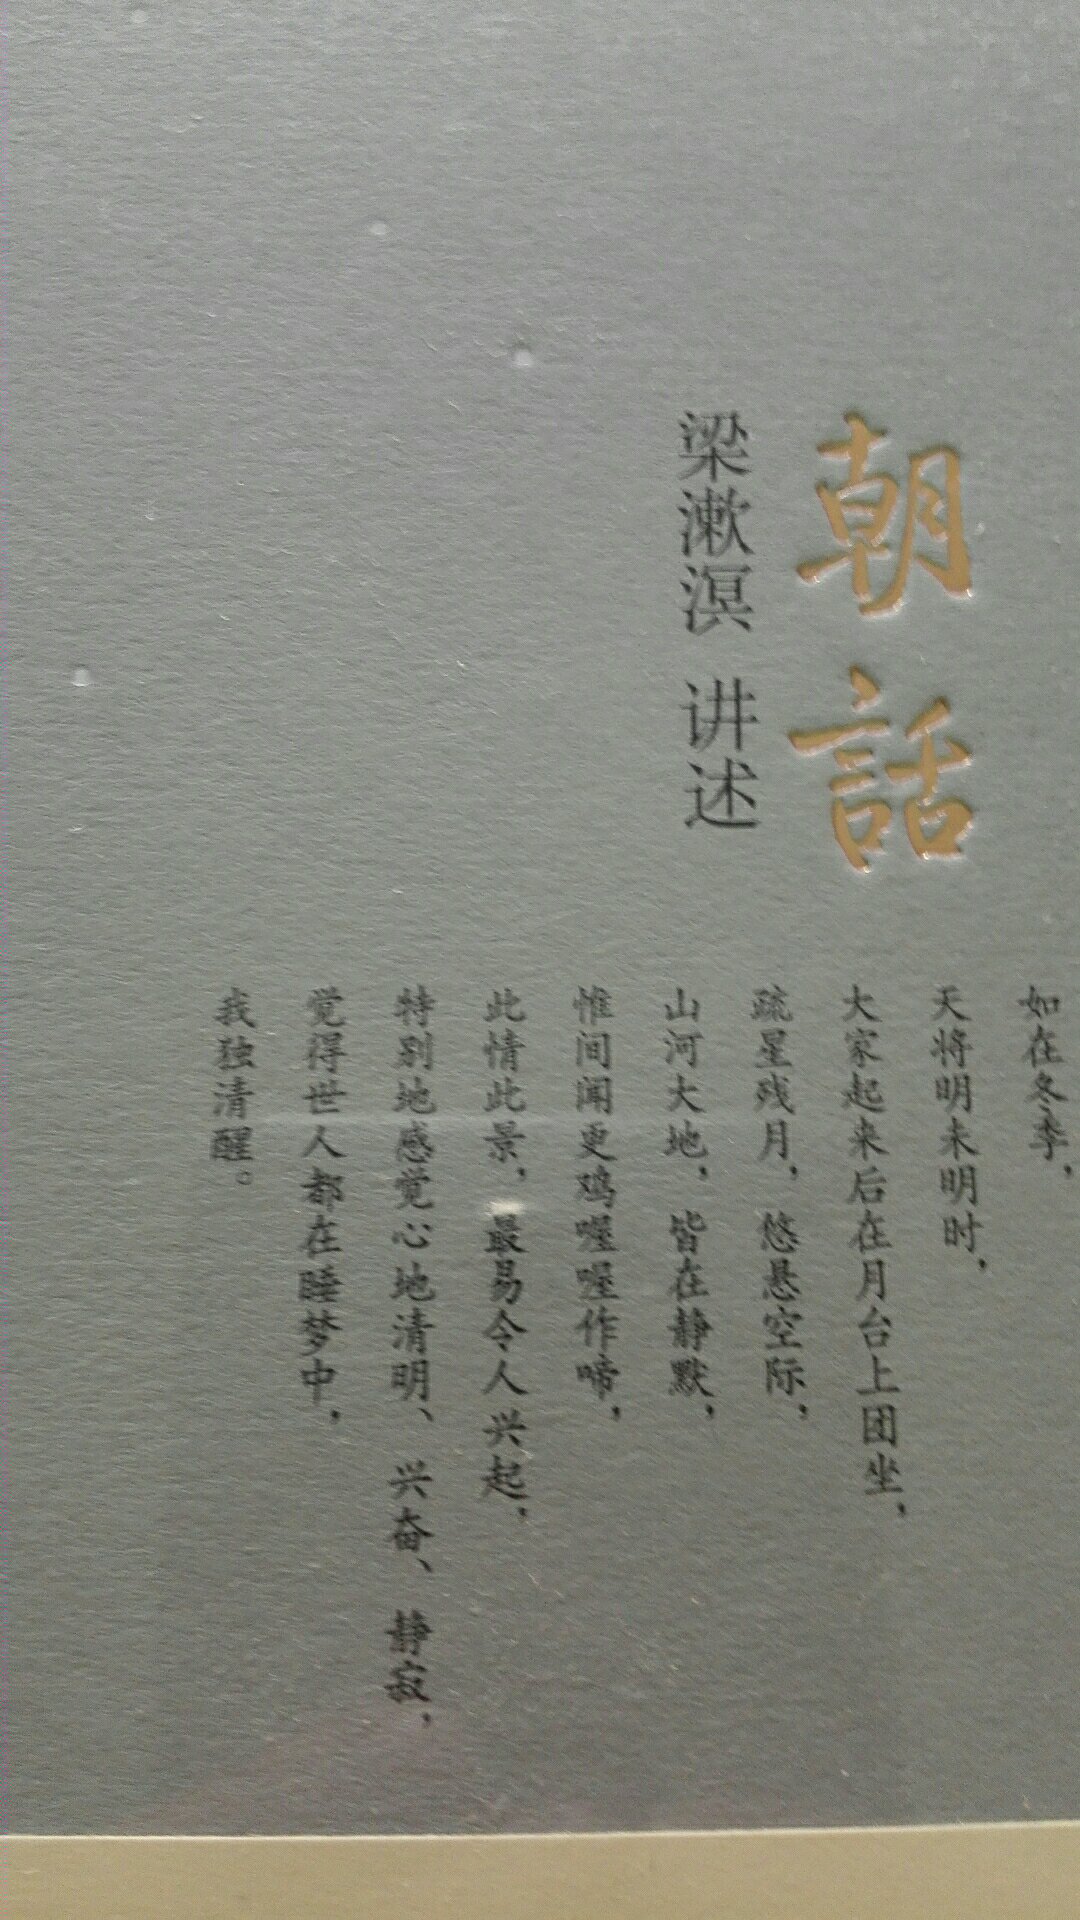 朝話
梁漱溟 讲述
如在冬季，
天将明未明时，
大家起来后在月台上团坐，
疏星残月，悠悬空际，
山河大地，皆在静默，
惟间闻更鸡喔喔作啼，
此情此景，最易令人兴起，
特别地感觉心地清明、兴奋、静寂，
觉得世人都在睡梦中，
我独清醒。